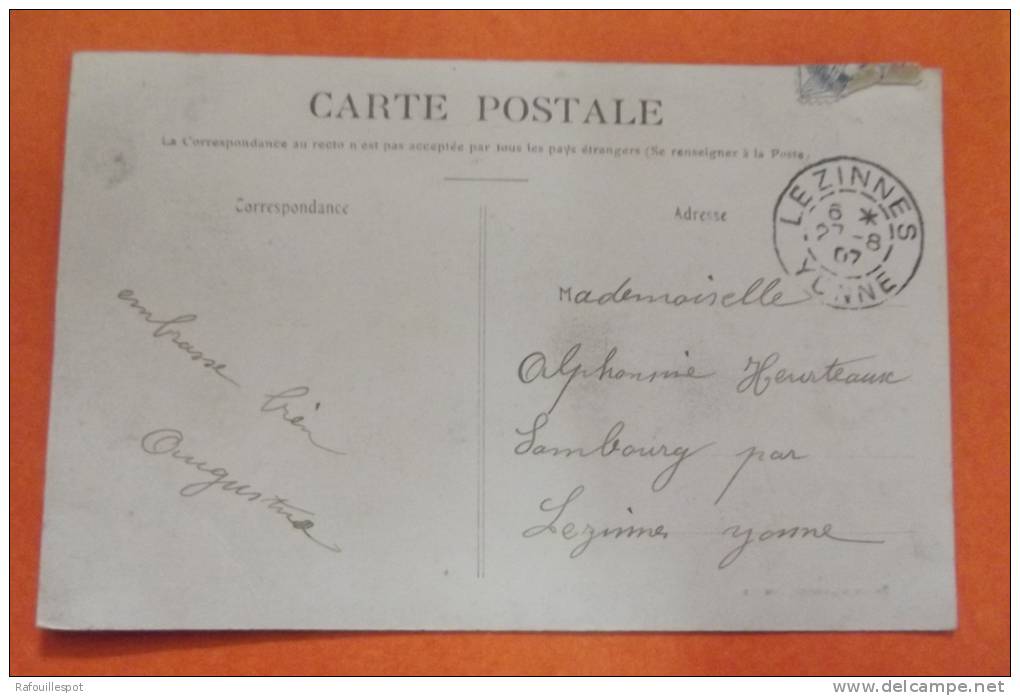 CARTE POSTALE
La Correspondance au recto n'est pas acceptée par tous les pays étrangers (Se renseigner à la Poste)
Correspondance
Adresse
LEZINNES
6 *
27-8
07
YONNE
embrasse bien
Mademoiselle
Alphonsine Heurteaux
Sambourg par
Lezinnes yonne
Rafouillespot
www.delcampe.net